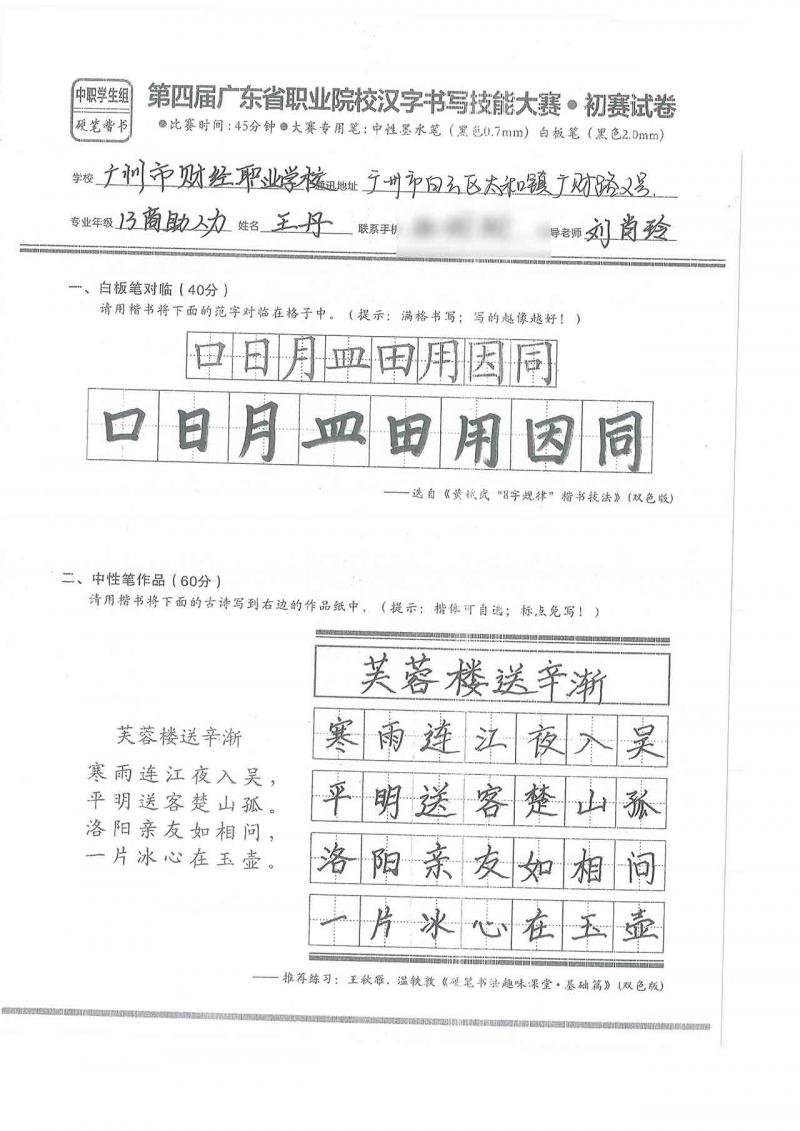 中职学生组
硬笔楷书
第四届广东省职业院校汉字书写技能大赛·初赛试卷
●比赛时间:45分钟●大赛专用笔:中性墨水笔(黑色0.7mm)白板笔(黑色2.0mm)
学校 广州市财经职业学校 通讯地址 广州市白云区太和镇广财路2号
专业年级 13商助人力 姓名 王丹 联系手机 导老师 刘肖玲
一、白板笔对临(40分)
请用楷书将下面的范字对临在格子中。(提示:满格书写;写的越像越好!)
口日月皿田用因同
口日月皿田用因同
——选自《黄斌武“8字规律”楷书技法》(双色版)
二、中性笔作品(60分)
请用楷书将下面的古诗写到右边的作品纸中。(提示:楷体可自选;标点免写!)
芙蓉楼送辛渐
寒雨连江夜入吴,
平明送客楚山孤。
洛阳亲友如相问,
一片冰心在玉壶。
芙蓉楼送辛渐
寒雨连江夜入吴
平明送客楚山孤
洛阳亲友如相问
一片冰心在玉壶
——推荐练习:王秋雁、温轶敦《硬笔书法趣味课堂·基础篇》(双色版)